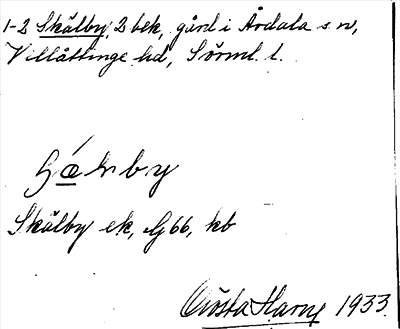 1-2 Skälby, 2 bek, gård i Årdala sn,
Villåttinge hd, Sörml. l.
Skälby ek, G66, kb
Gösta Harne 1933.